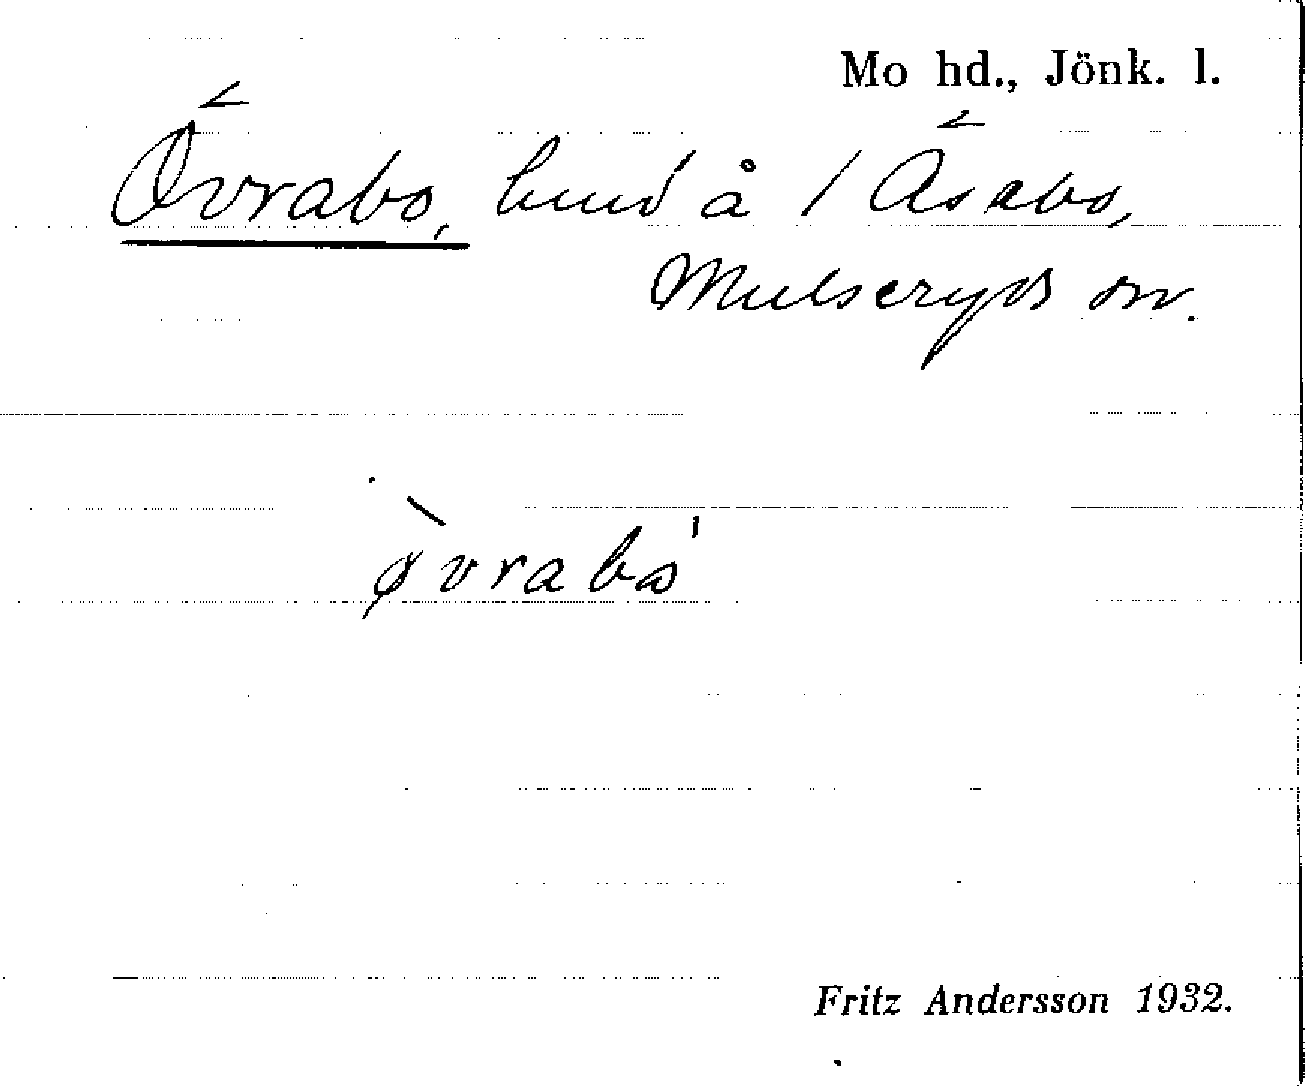 Mo hd., Jönk. l.
Övrabo, hmd å 1 Åsabo,
Mulseryds sn.
øvrabo
Fritz Andersson 1932.